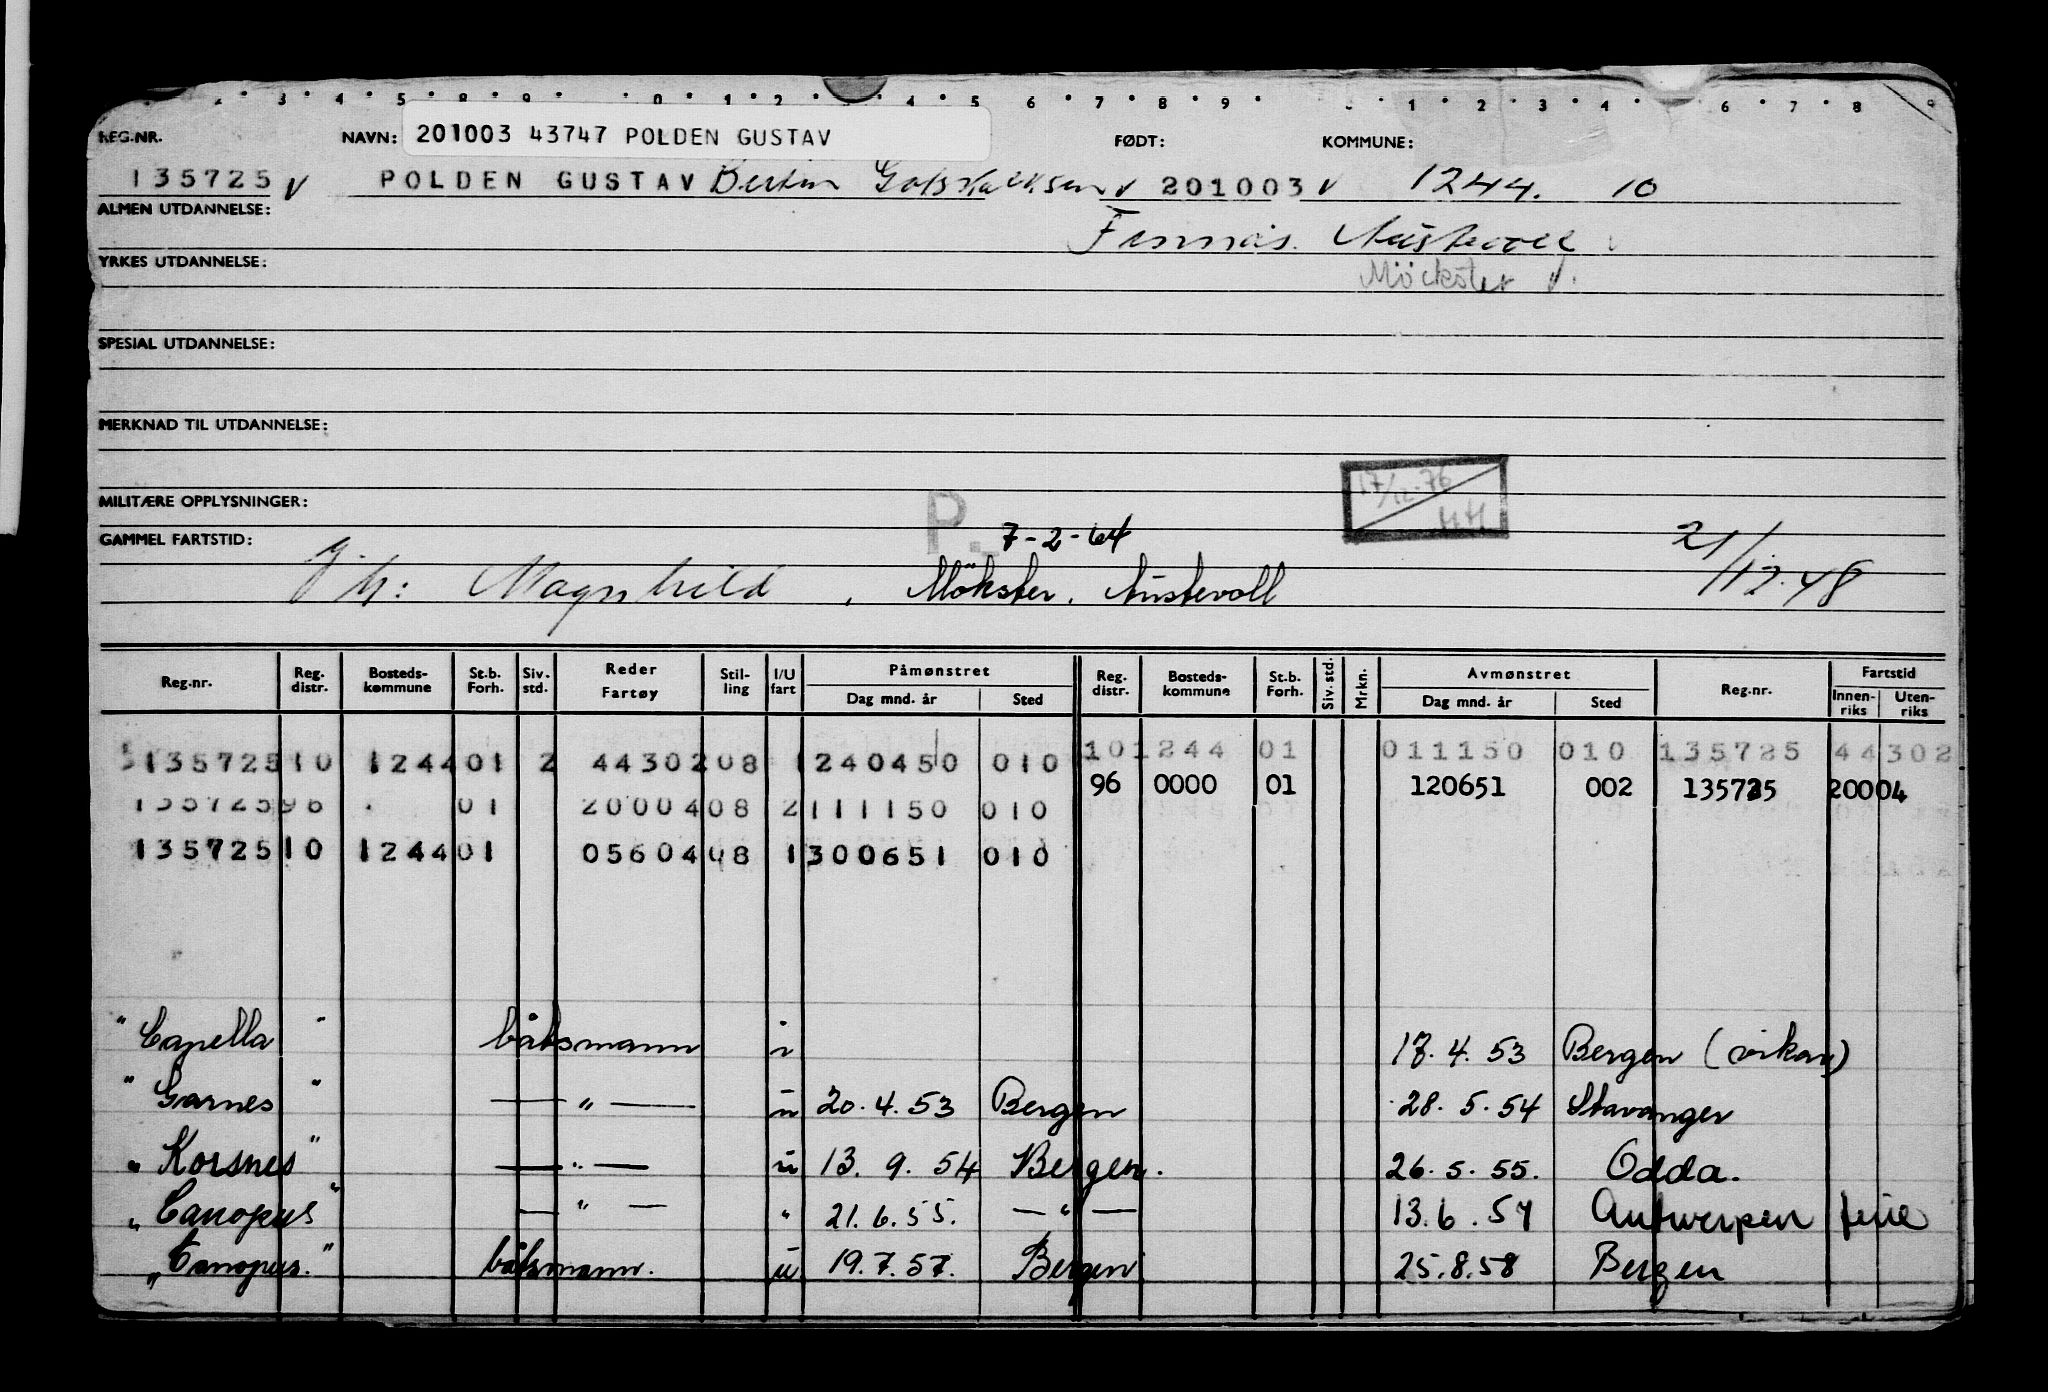 REG.NR. NAVN: 201003 43747 POLDEN GUSTAV FØDT: KOMMUNE:
135725 v POLDEN GUSTAV v 201003 v 1244. 10
ALMEN UTDANNELSE:
Austevoll
YRKES UTDANNELSE:
Möckster v.
SPESIAL UTDANNELSE:
MERKNAD TIL UTDANNELSE:
17/12-76
MILITÆRE OPPLYSNINGER: P.
GAMMEL FARTSTID: 7-2-64
Magnhild, Mökster, Austevoll 21/12.48
Reg.nr. Reg. distr. Bosteds-kommune St.b. Forh. Siv. std. Reder Fartøy Stil-ling I/U fart Påmønstret Dag mnd. år Sted Reg. distr. Bosteds-kommune St.b. Forh. Siv. std. Mrkn. Avmønstret Dag mnd. år Sted Reg.nr. Fartstid Innen-riks Uten-riks
135725 10 1244 01 2 44302 08 1 240450 010 10 1244 01 011150 010 135725 44302
135725 96 01 20004 08 2 111150 010 96 0000 01 120651 002 135725 20004
135725 10 1244 01 05604 08 1 300651 010
"Capella" båtsmann i 17.4.53 Bergen (vikar)
"Garnes" — " — u 20.4.53 Bergen 28.5.54 Stavanger
"Korsnes" — " — u 13.9.54 Bergen. 26.5.55. Odda.
"Canopus" — " — " 21.6.55. — " — 13.6.57 Antwerpen ferie
"Canopus." båtsmann. u 19.7.57. Bergen 25.8.58 Bergen